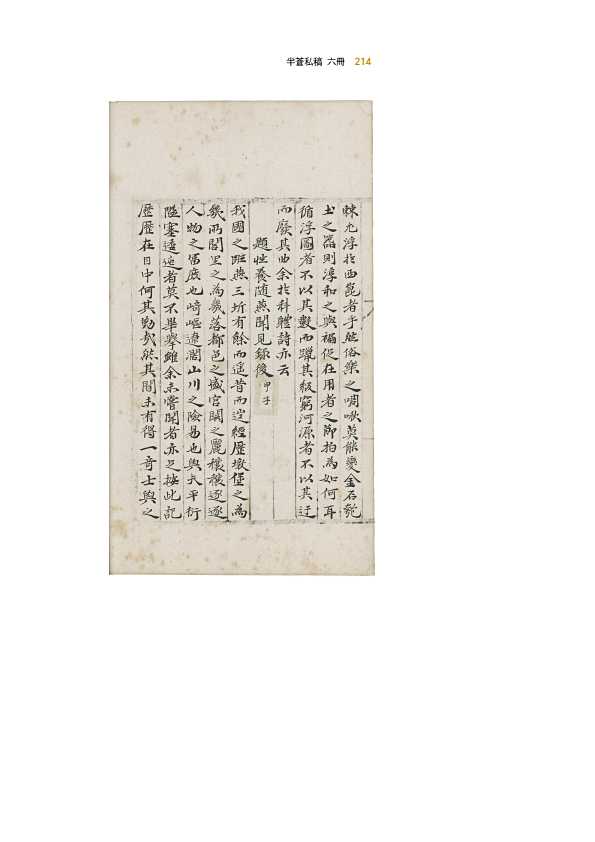 半蒼私稿 六冊 214
棘尤淳於西崑者乎然俗樂之啁啾莫能變金石匏
土之器則淳和之與褊促在用者之節拍為如何耳
循浮圖者不以其數而躐其級窮河源者不以其迂
而廢其曲余於科體詩亦云
題性養隨燕聞見錄後 甲子
我國之距燕三圻有餘而遙昔而逆經歷墩堡之為
幾所閭里之為幾落都邑之盛宮闕之麗穰穰逐逐
人物之富庶也崎嶇遼濶山川之險易也與夫平衍
隘塞遠邇者莫不畢擧雖余未嘗聞者亦足按此記
歷歷在目中何其勤哉然其間未有得一奇士與之